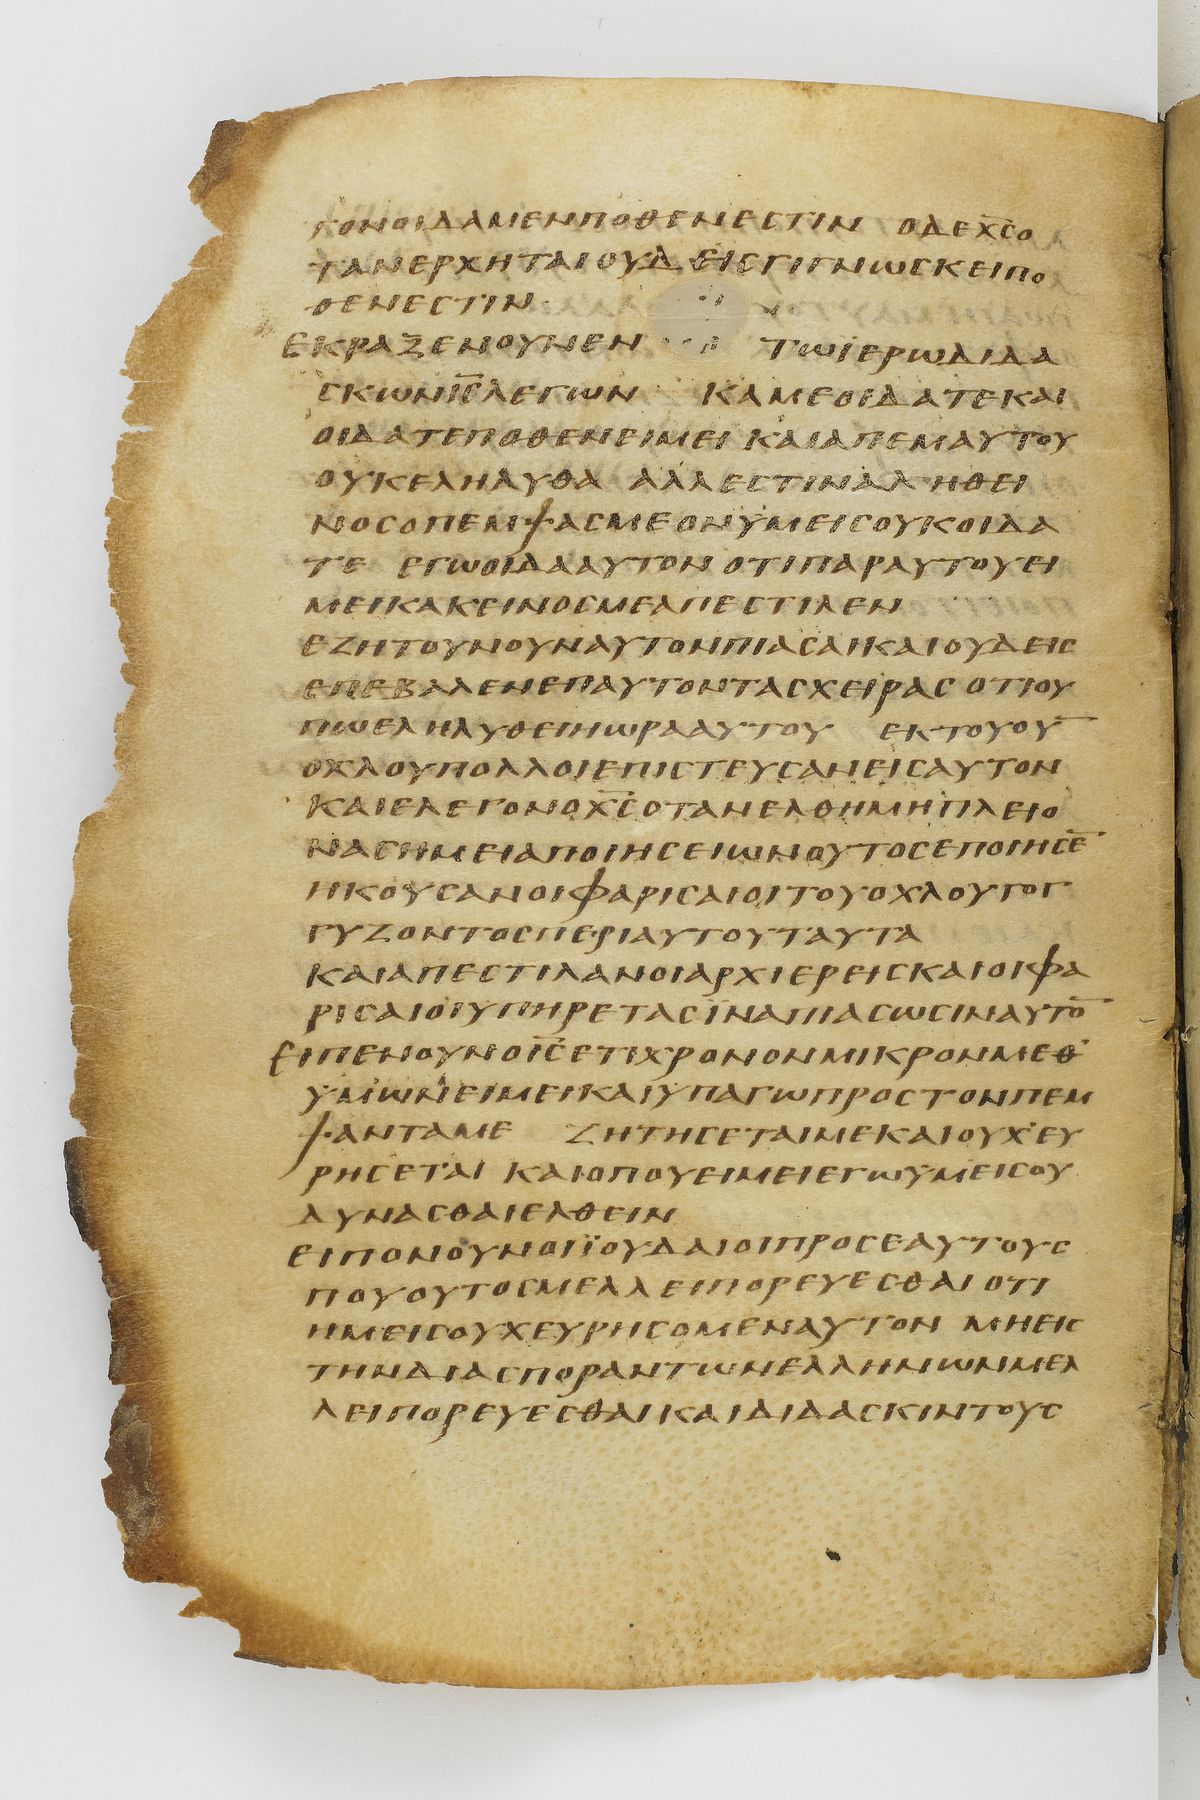 ΤΟΝΟΙΔΑΜΕΝΠΟΘΕΝΕΣΤΙΝ ΟΔΕΧ̅Σ̅Ο
ΤΑΝΕΡΧΗΤΑΙΟΥΔΕΙΣΓΙΓΝΩΣΚΕΙΠΟ
ΘΕΝΕΣΤΙΝ
ΕΚΡΑΞΕΝΟΥΝΕΝ ΤΩΪΕΡΩΔΙΔΑ
ΣΚΩΝΙ̅Σ̅ΛΕΓΩΝ ΚΑΜΕΟΙΔΑΤΕΚΑΙ
ΟΙΔΑΤΕΠΟΘΕΝΕΙΜΕΙ ΚΑΙΑΠΕΜΑΥΤΟΥ
ΟΥΚΕΛΗΛΥΘΑ ΑΛΛΕΣΤΙΝΑΛΗΘΕΙ
ΝΟΣΟΠΕΜΨΑΣΜΕΟΝΫΜΕΙΣΟΥΚΟΙΔΑ
ΤΕ ΕΓΩΟΙΔΑΑΥΤΟΝΟΤΙΠΑΡΑΥΤΟΥΕΙ
ΜΕΙΚΑΚΕΙΝΟΣΜΕΑΠΕΣΤΙΛΕΝ
ΕΖΗΤΟΥΝΟΥΝΑΥΤΟΝΠΙΑΣΑΙΚΑΙΟΥΔΕΙΣ
ΕΠΕΒΑΛΕΝΕΠΑΥΤΟΝΤΑΣΧΕΙΡΑΣ ΟΤΙΟΥ
ΠΩΕΛΗΛΥΘΕΙΗΩΡΑΑΥΤΟΥ ΕΚΤΟΥΟΥ̅
ΟΧΛΟΥΠΟΛΛΟΙΕΠΙΣΤΕΥΣΑΝΕΙΣΑΥΤΟΝ
ΚΑΙΕΛΕΓΟΝΟΧ̅Σ̅ΟΤΑΝΕΛΘΗΜΗΠΛΕΙΟ
ΝΑΣΗΜΕΙΑΠΟΙΗΣΕΙΩΝΟΥΤΟΣΕΠΟΙΗΣΕ̅
ΗΚΟΥΣΑΝΟΙΦΑΡΙΣΑΙΟΙΤΟΥΟΧΛΟΥΓΟΓ
ΓΥΖΟΝΤΟΣΠΕΡΙΑΥΤΟΥΤΑΥΤΑ
ΚΑΙΑΠΕΣΤΙΛΑΝΟΙΑΡΧΙΕΡΕΙΣΚΑΙΟΙΦΑ
ΡΙΣΑΙΟΙΥΠΗΡΕΤΑΣΪΝΑΠΙΑΣΩΣΙΝΑΥΤΟ̅
ΕΙΠΕΝΟΥΝΟΙ̅Σ̅ΕΤΙΧΡΟΝΟΝΜΙΚΡΟΝΜΕΘ'
ΥΜΩΝΕΙΜΕΙΚΑΙΥΠΑΓΩΠΡΟΣΤΟΝΠΕΜ
ΨΑΝΤΑΜΕ ΖΗΤΗΣΕΤΑΙΜΕΚΑΙΟΥΧ'ΕΥ
ΡΗΣΕΤΑΙ ΚΑΙΟΠΟΥΕΙΜΕΙΕΓΩΥΜΕΙΣΟΥ
ΔΥΝΑΣΘΑΙΕΛΘΕΙΝ
ΕΙΠΟΝΟΥΝΟΙΪΟΥΔΑΙΟΙΠΡΟΣΕΑΥΤΟΥΣ
ΠΟΥΟΥΤΟΣΜΕΛΛΕΙΠΟΡΕΥΕΣΘΑΙΟΤΙ
ΗΜΕΙΣΟΥΧΕΥΡΗΣΟΜΕΝΑΥΤΟΝ ΜΗΕΙΣ
ΤΗΝΔΙΑΣΠΟΡΑΝΤΩΝΕΛΛΗΝΩΝΜΕΛ
ΛΕΙΠΟΡΕΥΕΣΘΑΙΚΑΙΔΙΔΑΣΚΙΝΤΟΥΣ